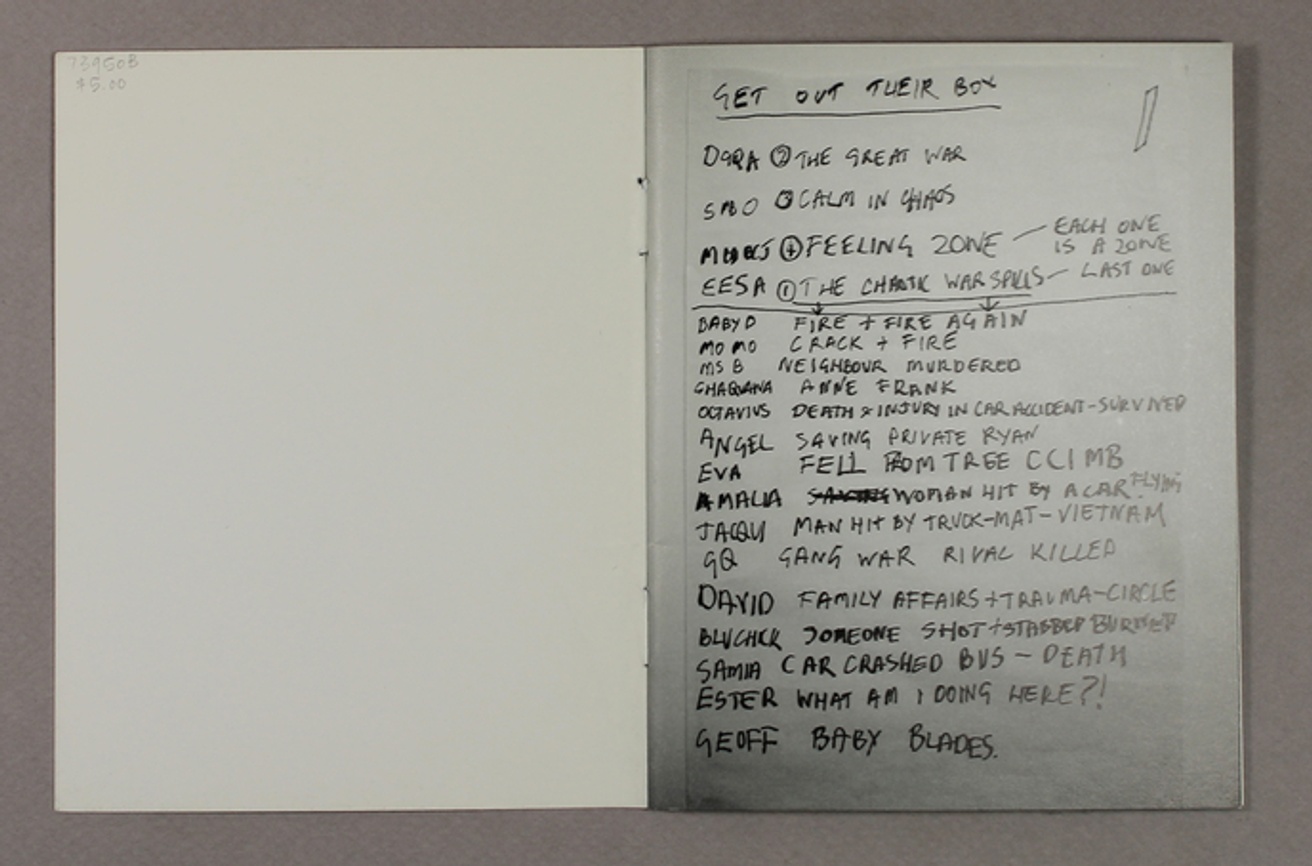 73950B
$5.00
GET OUT THEIR BOX
DORA ② THE GREAT WAR
SMBO ③ CALM IN CHAOS
④ FEELING ZONE — EACH ONE
IS A ZONE
EESA ① THE CHAOTIC WAR SPILLS — LAST ONE
BABY D FIRE + FIRE AGAIN
MO MO CRACK + FIRE
MS B NEIGHBOUR MURDERED
ANNE FRANK
OCTAVIUS DEATH & INJURY IN CAR ACCIDENT-SURVIVED
ANGEL SAVING PRIVATE RYAN
EVA FELL FROM TREE CLIMB
AMALIA WOMAN HIT BY A CAR FLYING
JACQUI MAN HIT BY TRUCK-MAT-VIETNAM
GQ GANG WAR RIVAL KILLED
DAVID FAMILY AFFAIRS + TRAUMA-CIRCLE
SOMEONE SHOT + STABBED BURNED
SAMIA CAR CRASHED BUS - DEATH
ESTER WHAT AM I DOING HERE?!
GEOFF BABY BLADES.